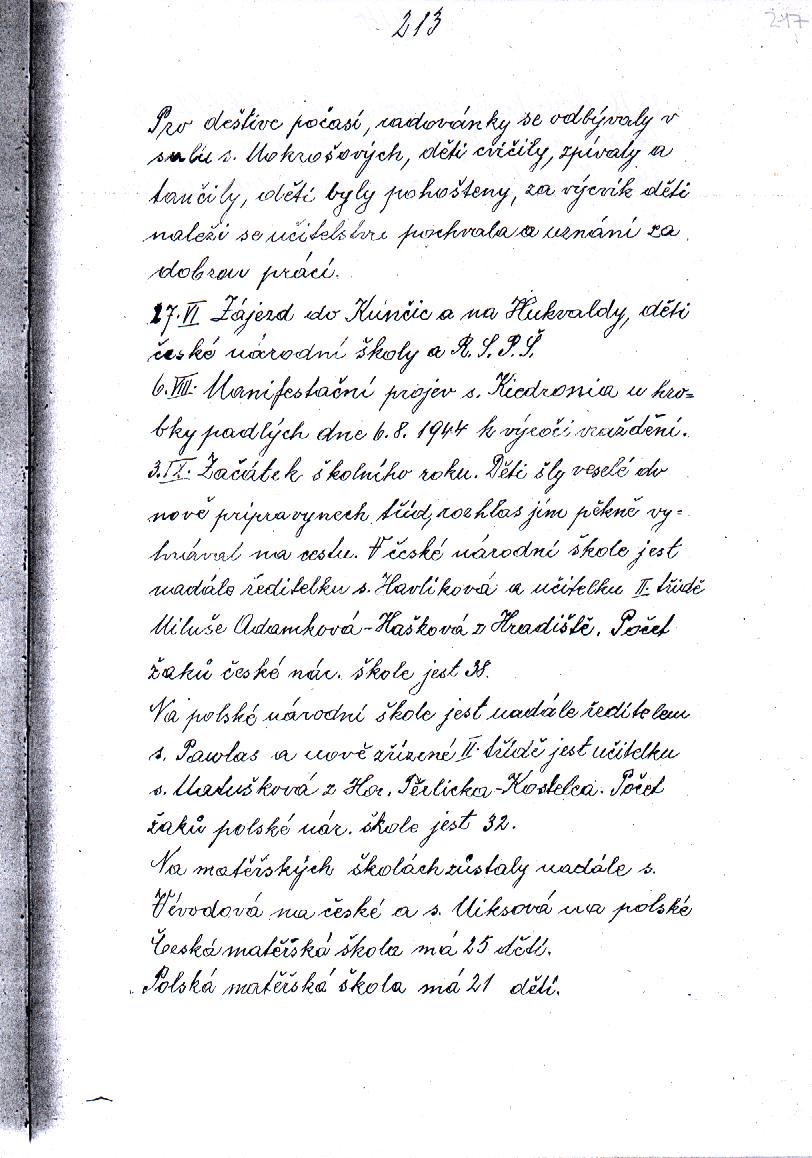 213
217
Pro deštive počasí, radovánky se odbývaly v
salu s. Mokrošových, děti cvičily, zpívaly a
tančily, děti byly pohoštěny, za výcvik děti
naleží se učitelstvu pochvala a uznání za
dobrav práci.
17.VI Zájezd do Kunčic a na Hukvaldy, děti
české národní školy a R.S.P.Š.
6.VIII. Manifestační projev s. Kiedronia u hro=
bky padlých dne 6.8.1944 k výročí vraždění.
3.IX. Začátek školního roku. Děti šly veselé do
nově pripravynech tříd, rozhlas jim pěkně vy=
hrával na cestu. V české národní škole jest
nadále ředitelku s. Havlíková a učitelku II. třídě
Miluše Adamková-Hašková z Hradiště. Počet
žaků české nár. škole jest 38.
Na polské národní škole jest nadále ředitelem
s. Pawlas a nově zřízené II. třídě jest učitelku
s. Matušková z Hor. Těrlicka-Kostelca. Počet
žaků polské nár. škole jest 32.
Na matěřských školách zůstaly nadále s.
Vévodová na české a s. Miksová na polské
Česká matěřská škola má 25 dětí.
Polská matěřská škola má 21 dětí.